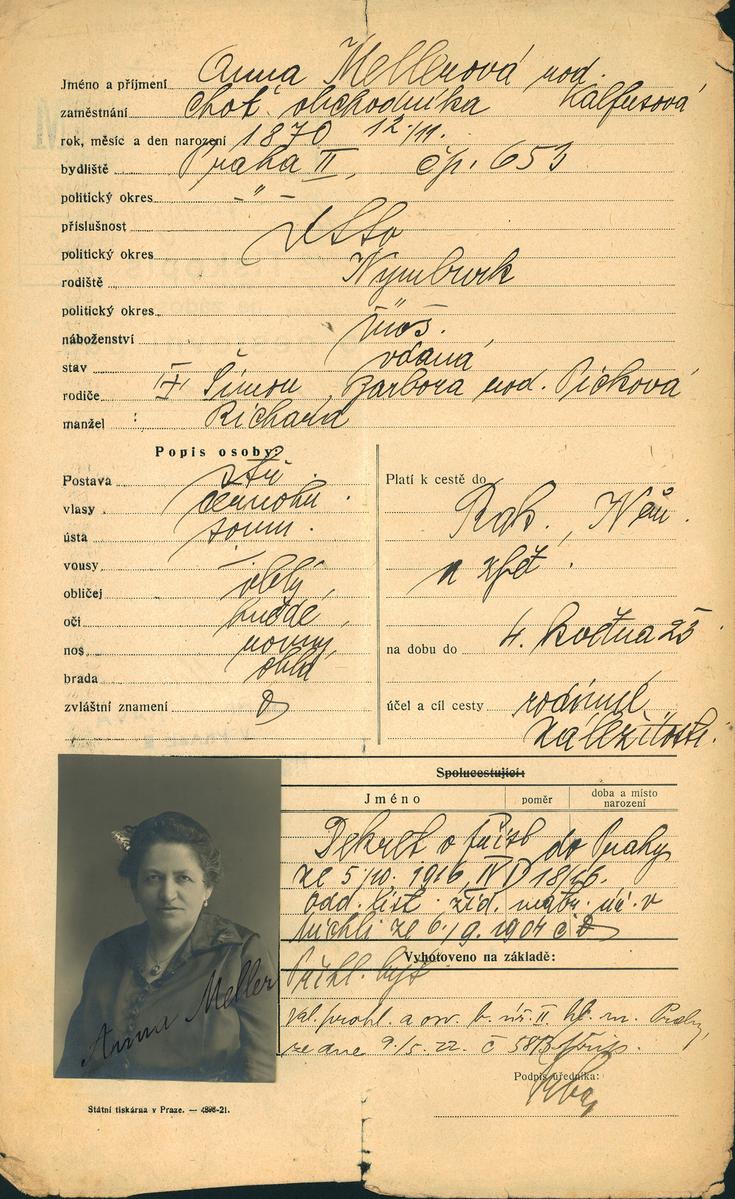 Jméno a příjmení Anna Mellerová rod.
zaměstnání choť obchodníka Kalfusová
rok, měsíc a den narození 1870 12/11.
bydliště Praha II, čp. 653
politický okres – " –
příslušnost
politický okres
rodiště Nymburk
politický okres
náboženství
stav vdaná
rodiče Šimon, Barbora rod. Pičková
manžel : Richard
Popis osoby:
Postava stř.
vlasy černohn.
ústa soum.
vousy –
obličej oblý
oči hnědé
nos rovný
brada oblá
zvláštní znamení
Platí k cestě do
Rak., Něm.
a zpět.
na dobu do 4. května 25
účel a cíl cesty rodinné
záležitosti.
Spolucestující:
Jméno poměr doba a místo narození
Dekret o přísl. do Prahy
ze 5/10. 1916, IV D 18/16.
Odd. list. žid. matr. úř. v
Michli ze 6/9. 1904 č.
Vyhotoveno na základě:
Přihl. lyst
pol. prohl. a osv. b. úř. II. hl. m. Prahy,
ze dne 9./5. 22. č
Podpis úředníka:
Anna Meller
Státní tiskárna v Praze. — 4898-21.